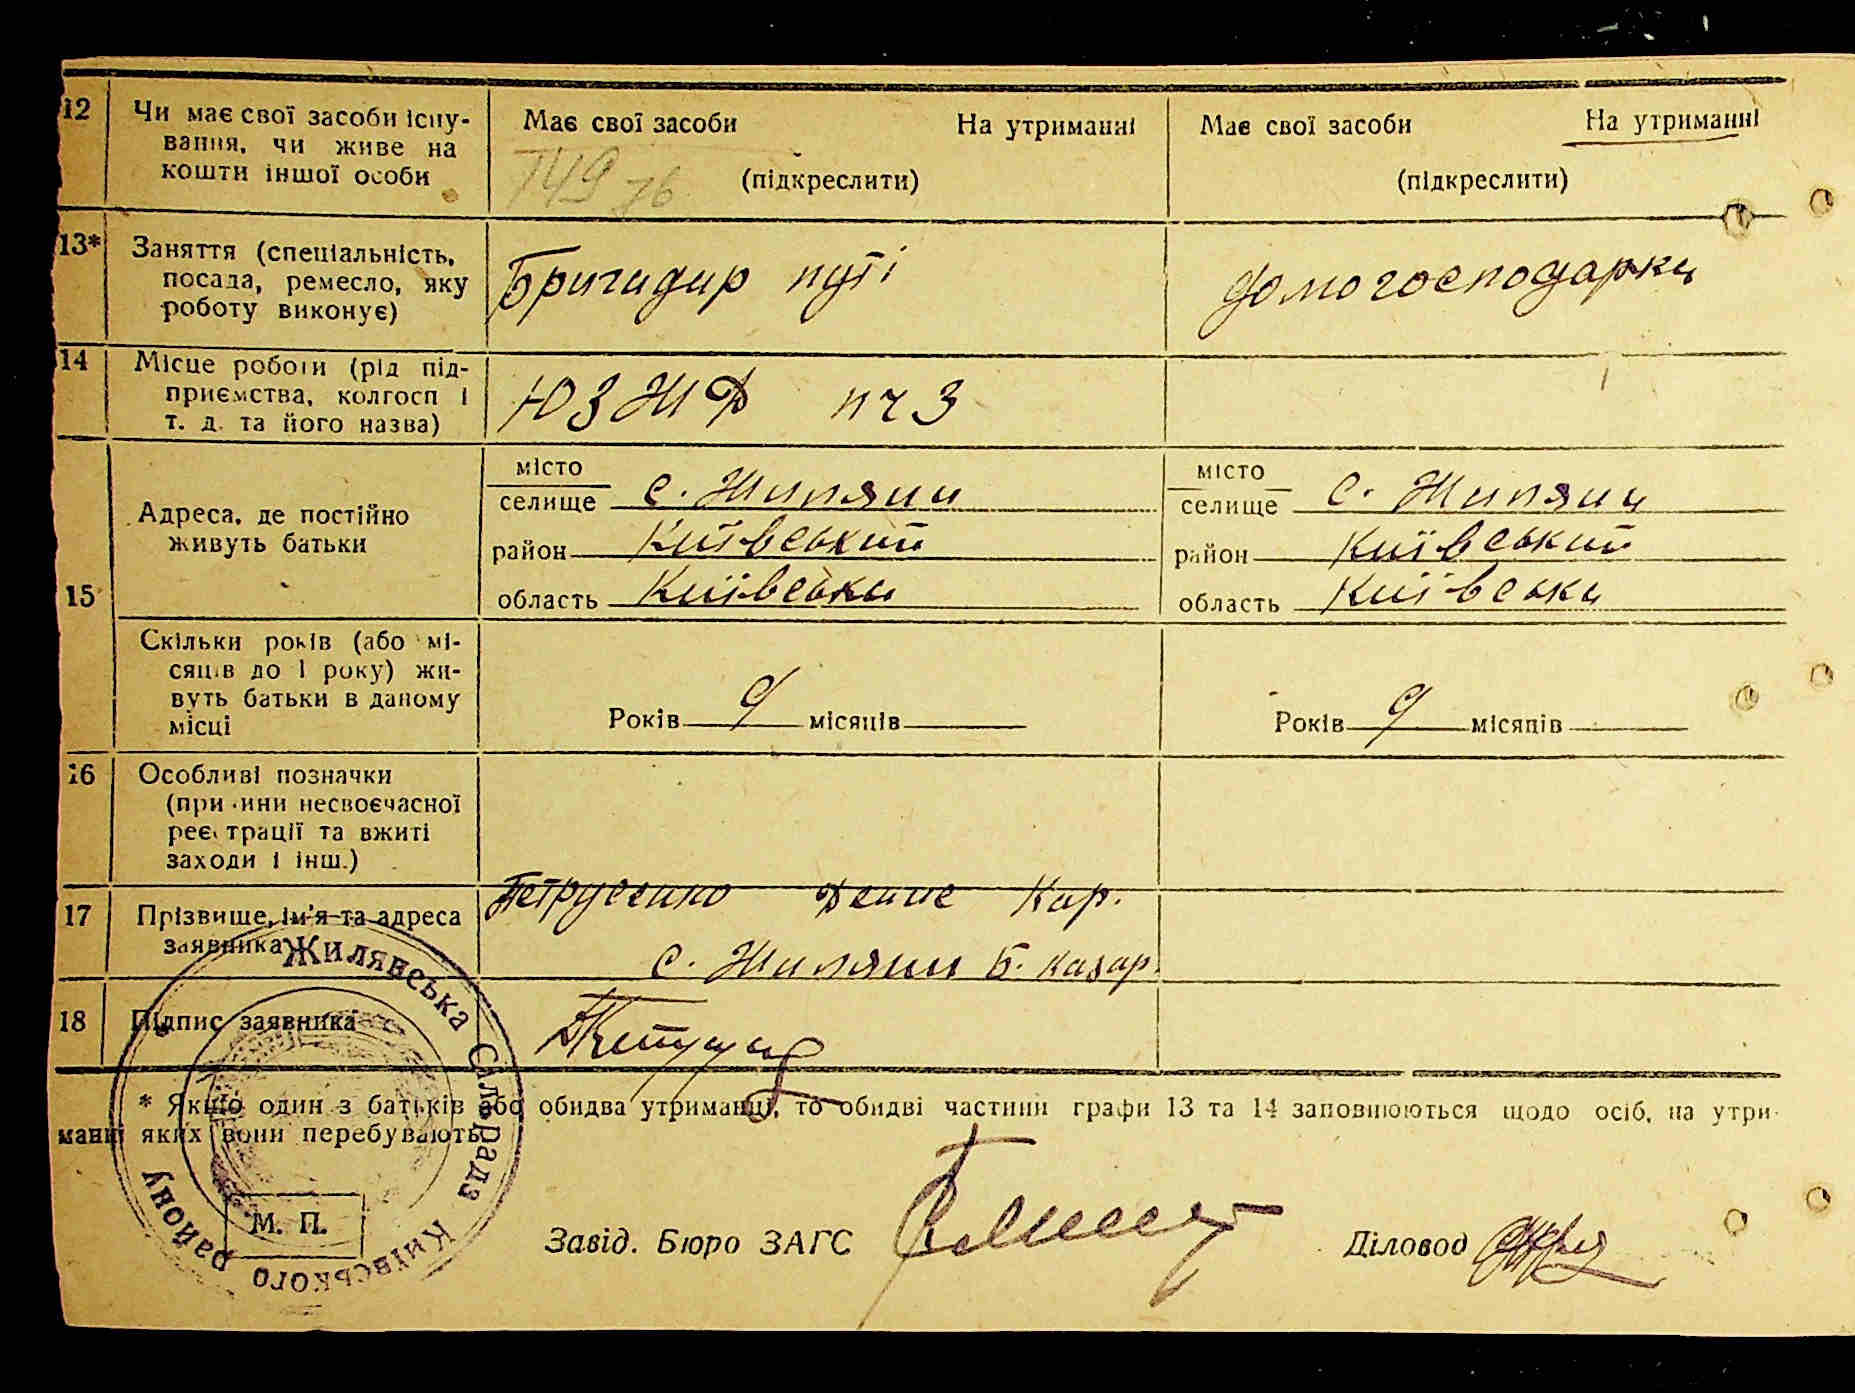 12
Чи має свої засоби існу-
вання, чи живе на
кошти іншої особи
Має свої засоби На утриманні
(підкреслити)
149 76
Має свої засоби На утриманні
(підкреслити)
13*
Заняття (спеціальність,
посада, ремесло, яку
роботу виконує)
Бригадир путі
домогосподарка
14
Місце роботи (рід під-
приємства, колгосп і
т. д. та його назва)
ЮЗЖД ПЧ 3
15
Адреса, де постійно
живуть батьки
місто
селище с. Жиляни
район Київський
область Київська
місто
селище с. Жиляни
район Київський
область Київська
Скільки років (або мі-
сяців до 1 року) жи-
вуть батьки в даному
місці
Років 9 місяців
Років 9 місяців
16
Особливі позначки
(причини несвоєчасної
реєстрації та вжиті
заходи і інш.)
17
Прізвище, ім'я та адреса
заявника
Петрусенко Денис Кир.
с. Жиляни Б. казар.
18
Підпис заявника
* Якщо один з батьків або обидва утриманці, то обидві частини графи 13 та 14 заповнюються щодо осіб, на утри-
манні яких вони перебувають
Жилянська Сільрада Київського району
М. П.
Завід. Бюро ЗАГС
Діловод